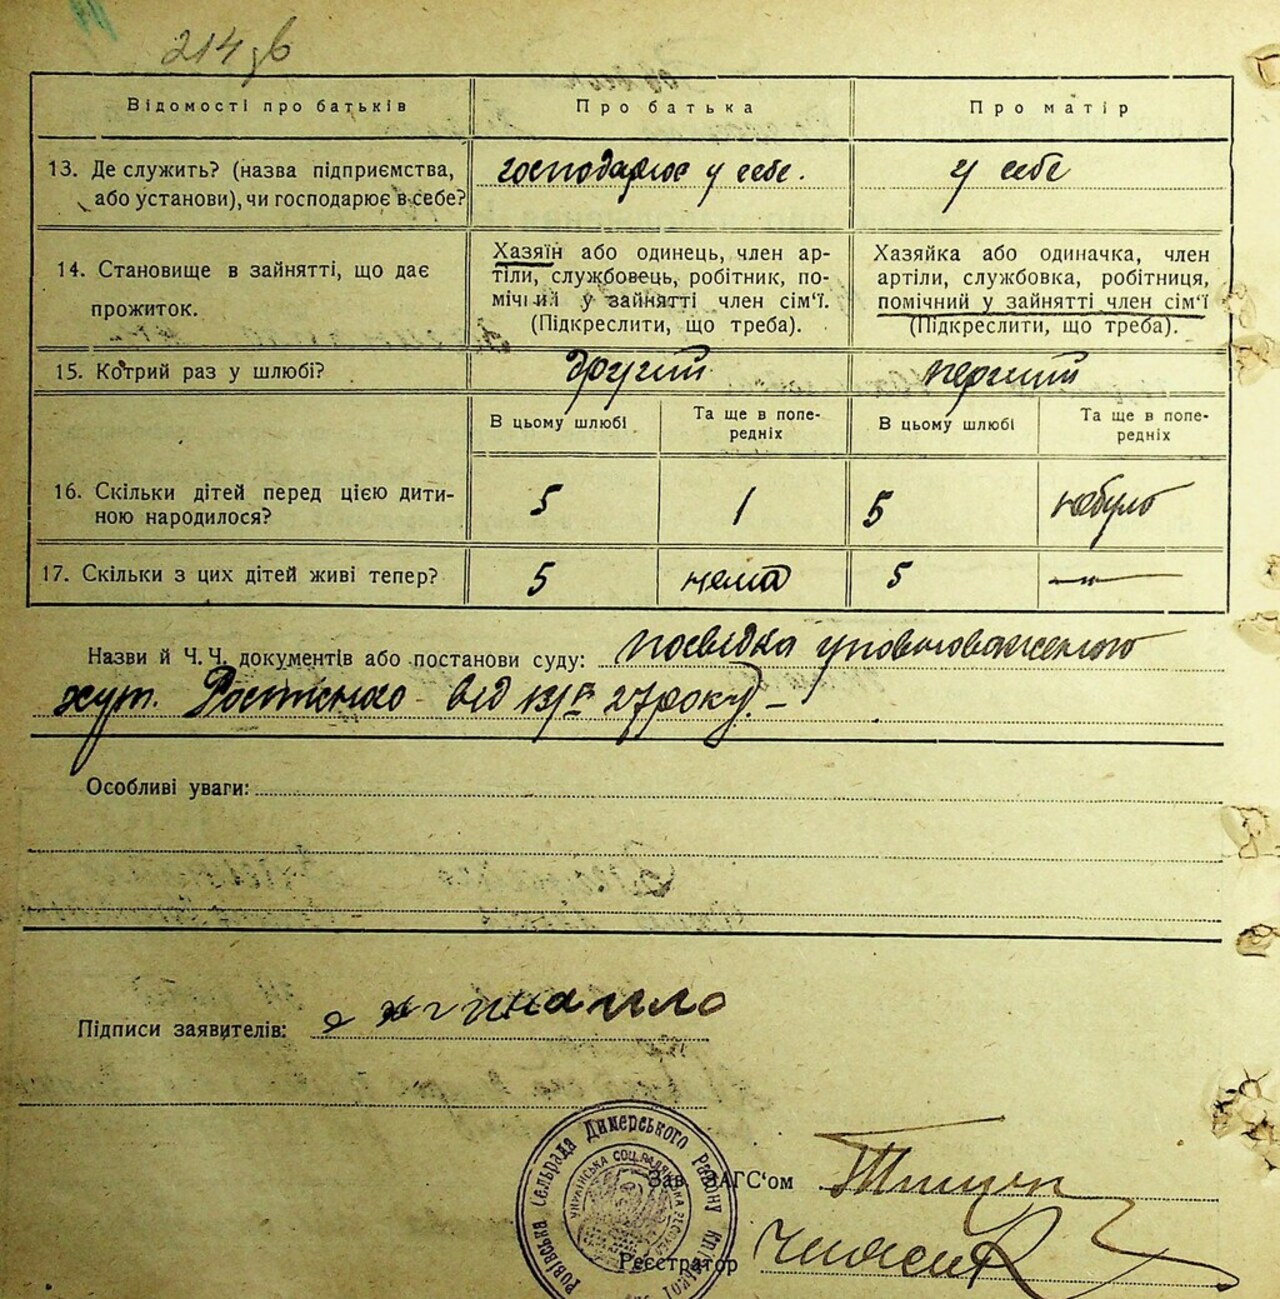 214 зв
Відомості про батьків
Про батька
Про матір
13. Де служить? (назва підприємства,
або установи), чи господарює в себе?
господарює у себе.
у себе
14. Становище в зайнятті, що дає
прожиток.
Хазяїн або одинець, член ар-
тіли, службовець, робітник, по-
мічний у зайнятті член сім'ї.
(Підкреслити, що треба).
Хазяйка або одиначка, член
артіли, службовка, робітниця,
помічний у зайнятті член сім'ї
(Підкреслити, що треба).
15. Котрий раз у шлюбі?
другий
перший
В цьому шлюбі
Та ще в попе-
редніх
В цьому шлюбі
Та ще в попе-
редніх
16. Скільки дітей перед цією дити-
ною народилося?
5
1
5
небуло
17. Скільки з цих дітей живі тепер?
5
нема
5
—"—
Назви й Ч. Ч. документів або постанови суду: посвідка уповноваженого
хут. від 27 року. –
Особливі уваги:
Підписи заявителів:
Зав. ЗАГС'ом
Реєстратор
сільрада Димерського району
УКРАЇНСЬКА СОЦ. РАДЯНСЬКА